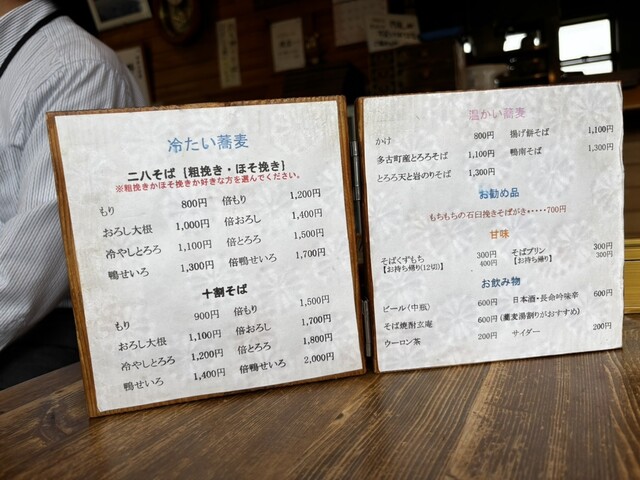 冷たい蕎麦
二八そば [粗挽き・ほそ挽き]
※粗挽きかほそ挽きか好きな方を選んでください。
もり 800円 倍もり 1,200円
おろし大根 1,000円 倍おろし 1,400円
冷やしとろろ 1,100円 倍とろろ 1,500円
鴨せいろ 1,300円 倍鴨せいろ 1,700円
十割そば
もり 900円 倍もり 1,500円
おろし大根 1,100円 倍おろし 1,700円
冷やしとろろ 1,200円 倍とろろ 1,800円
鴨せいろ 1,400円 倍鴨せいろ 2,000円
温かい蕎麦
かけ 800円 揚げ餅そば 1,100円
多古町産とろろそば 1,100円 鴨南そば 1,300円
とろろ天と岩のりそば 1,300円
お勧め品
もちもちの石臼挽きそばがき・・・・・700円
甘味
そばくずもち 300円 そばプリン 300円
【お持ち帰り(12切)】 400円 【お持ち帰り】 300円
お飲み物
ビール(中瓶) 600円 日本酒・長命吟味辛 600円
そば焼酎玄庵 600円 (蕎麦湯割りがおすすめ)
ウーロン茶 200円 サイダー 200円